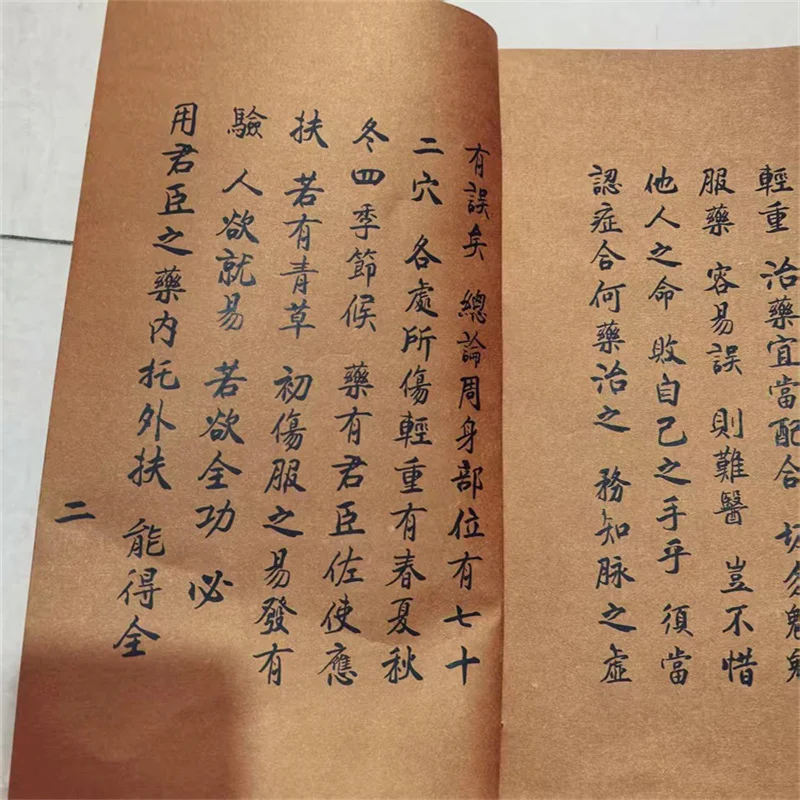 輕重 治藥宜當配合 切勿
服藥 容易誤 則難醫 豈不惜
他人之命 敗自己之手乎 須當
認症合何藥治之 務知脉之虛
有誤矣 總論周身部位有七十
二穴 各處所傷輕重有春夏秋
冬四季節候 藥有君臣佐使應
扶 若有青草 初傷服之易發有
驗 人欲就易 若欲全功 必
用君臣之藥內托外扶 能得全
二